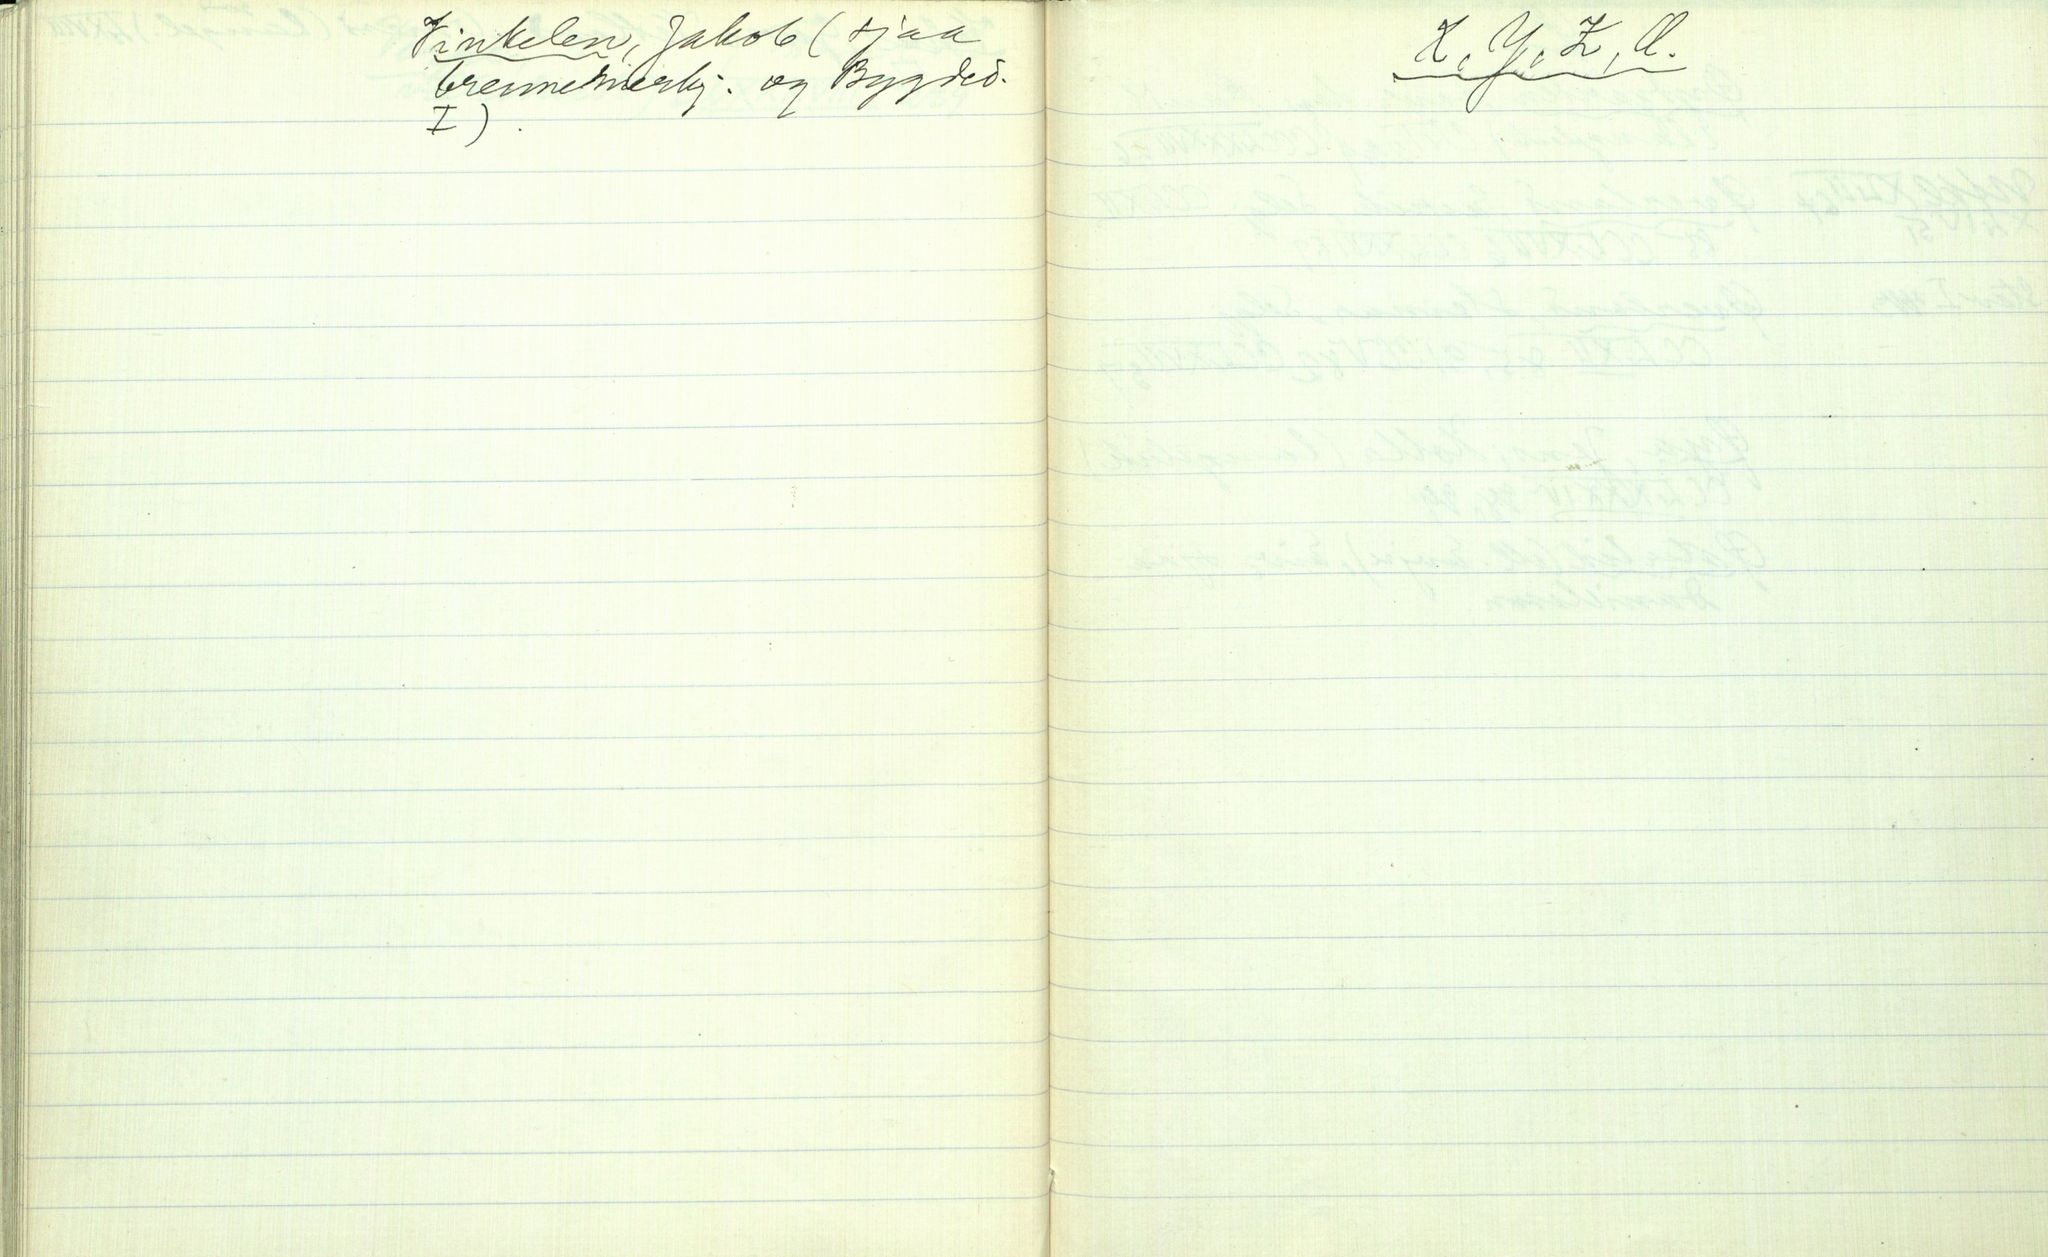 Vinkelen, Jakob (sjaa
brennemerkj. og Bygded.
I).
X, Y, Z, Æ.